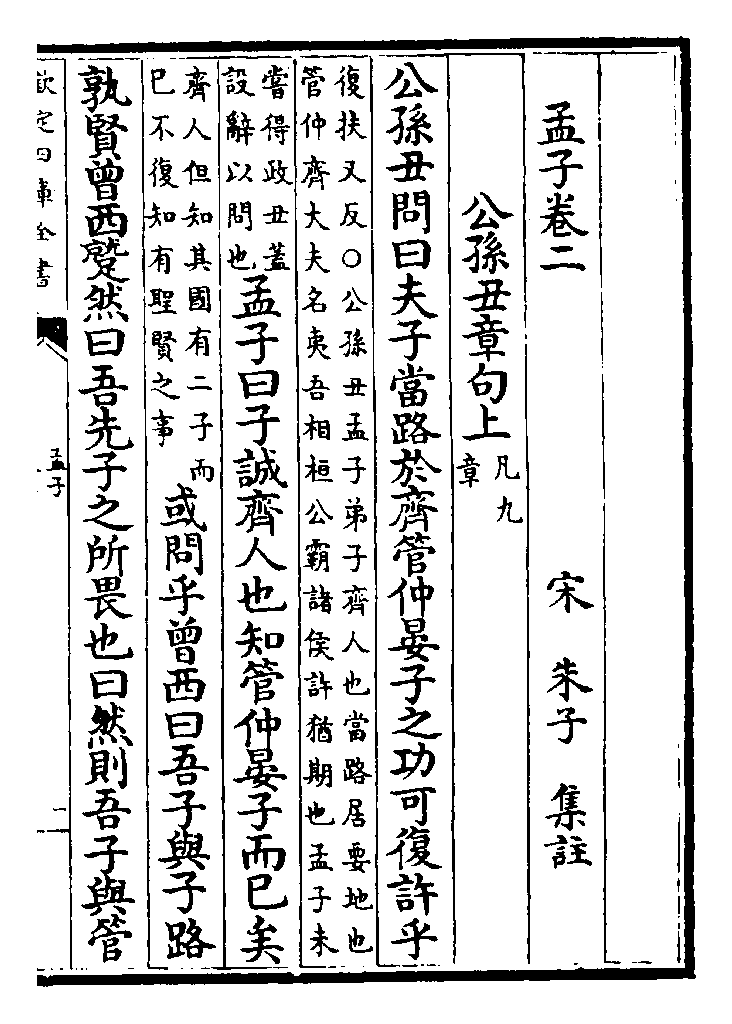 孟子卷二
宋 朱子 集註
公孫丑章句上
凡九
章
公孫丑問曰夫子當路於齊管仲晏子之功可復許乎
復扶又反○公孫丑孟子弟子齊人也當路居要地也
管仲齊大夫名夷吾相桓公霸諸侯許猶期也孟子未
嘗得政丑蓋
設辭以問也
孟子曰子誠齊人也知管仲晏子而已矣
齊人但知其國有二子而
已不復知有聖賢之事
或問乎曾西曰吾子與子路
孰賢曾西蹵然曰吾先子之所畏也曰然則吾子與管
欽定四庫全書
孟子
二